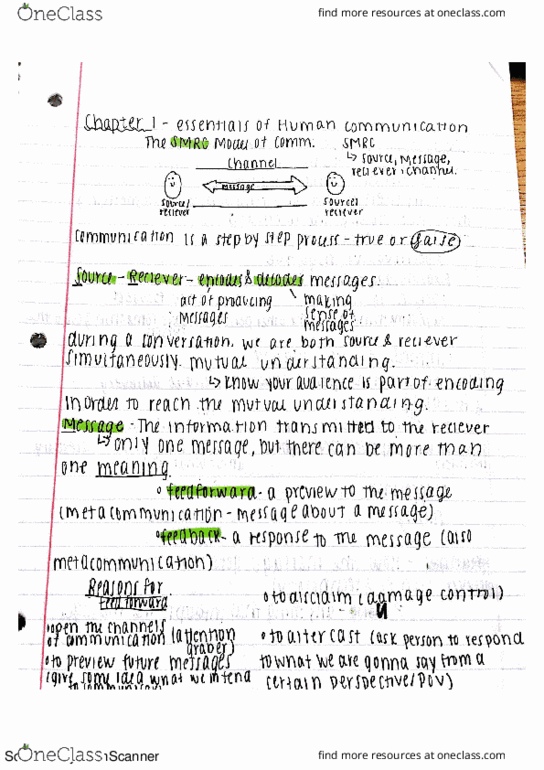 OneClass
find more resources at oneclass.com
Chapter 1 - essentials of Human communication
The SMRC Model of Comm. SMRC
↳ source, message,
reciever, channel.
Channel
message
source/
reciever
source/
reciever
communication is a step by step process - true or false
Source - Reciever - encodes & decodes messages.
act of producing
messages
making
sense of
messages.
during a conversation, we are both source & reciever
simultaneously. mutual understanding.
↳ know your audience is part of encoding
inorder to reach the mutual understanding.
Message - The information transmitted to the reciever
↳ only one message, but there can be more than
one meaning.
° feedforward - a preview to the message
(metacommunication - message about a message)
° feedback - a response to the message (also
metacommunication)
Reasons for
feedforward
°open the channels
of communication (attention
graber)
°to preview future messages
(give some idea what we intend
to communicate
°to disclaim (damage control)
°to alter cast (ask person to respond
to what we are gonna say from a
certain perspective/POV)
OneClass
Scanner
find more resources at oneclass.com